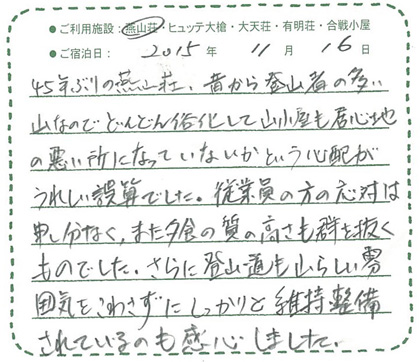 ●ご利用施設：燕山荘・ヒュッテ大槍・大天荘・有明荘・合戦小屋
●ご宿泊日：2015年11月16日
45年ぶりの燕山荘、昔から登山者の多い
山なのでどんどん俗化して山小屋も居心地
の悪い所になっていないかという心配が
うれしい誤算でした。従業員の方の応対は
申し分なく、また夕食の質の高さも群を抜く
ものでした。さらに登山道も山らしい雰
囲気をこわさずにしっかりと維持整備
されているのも感心しました。